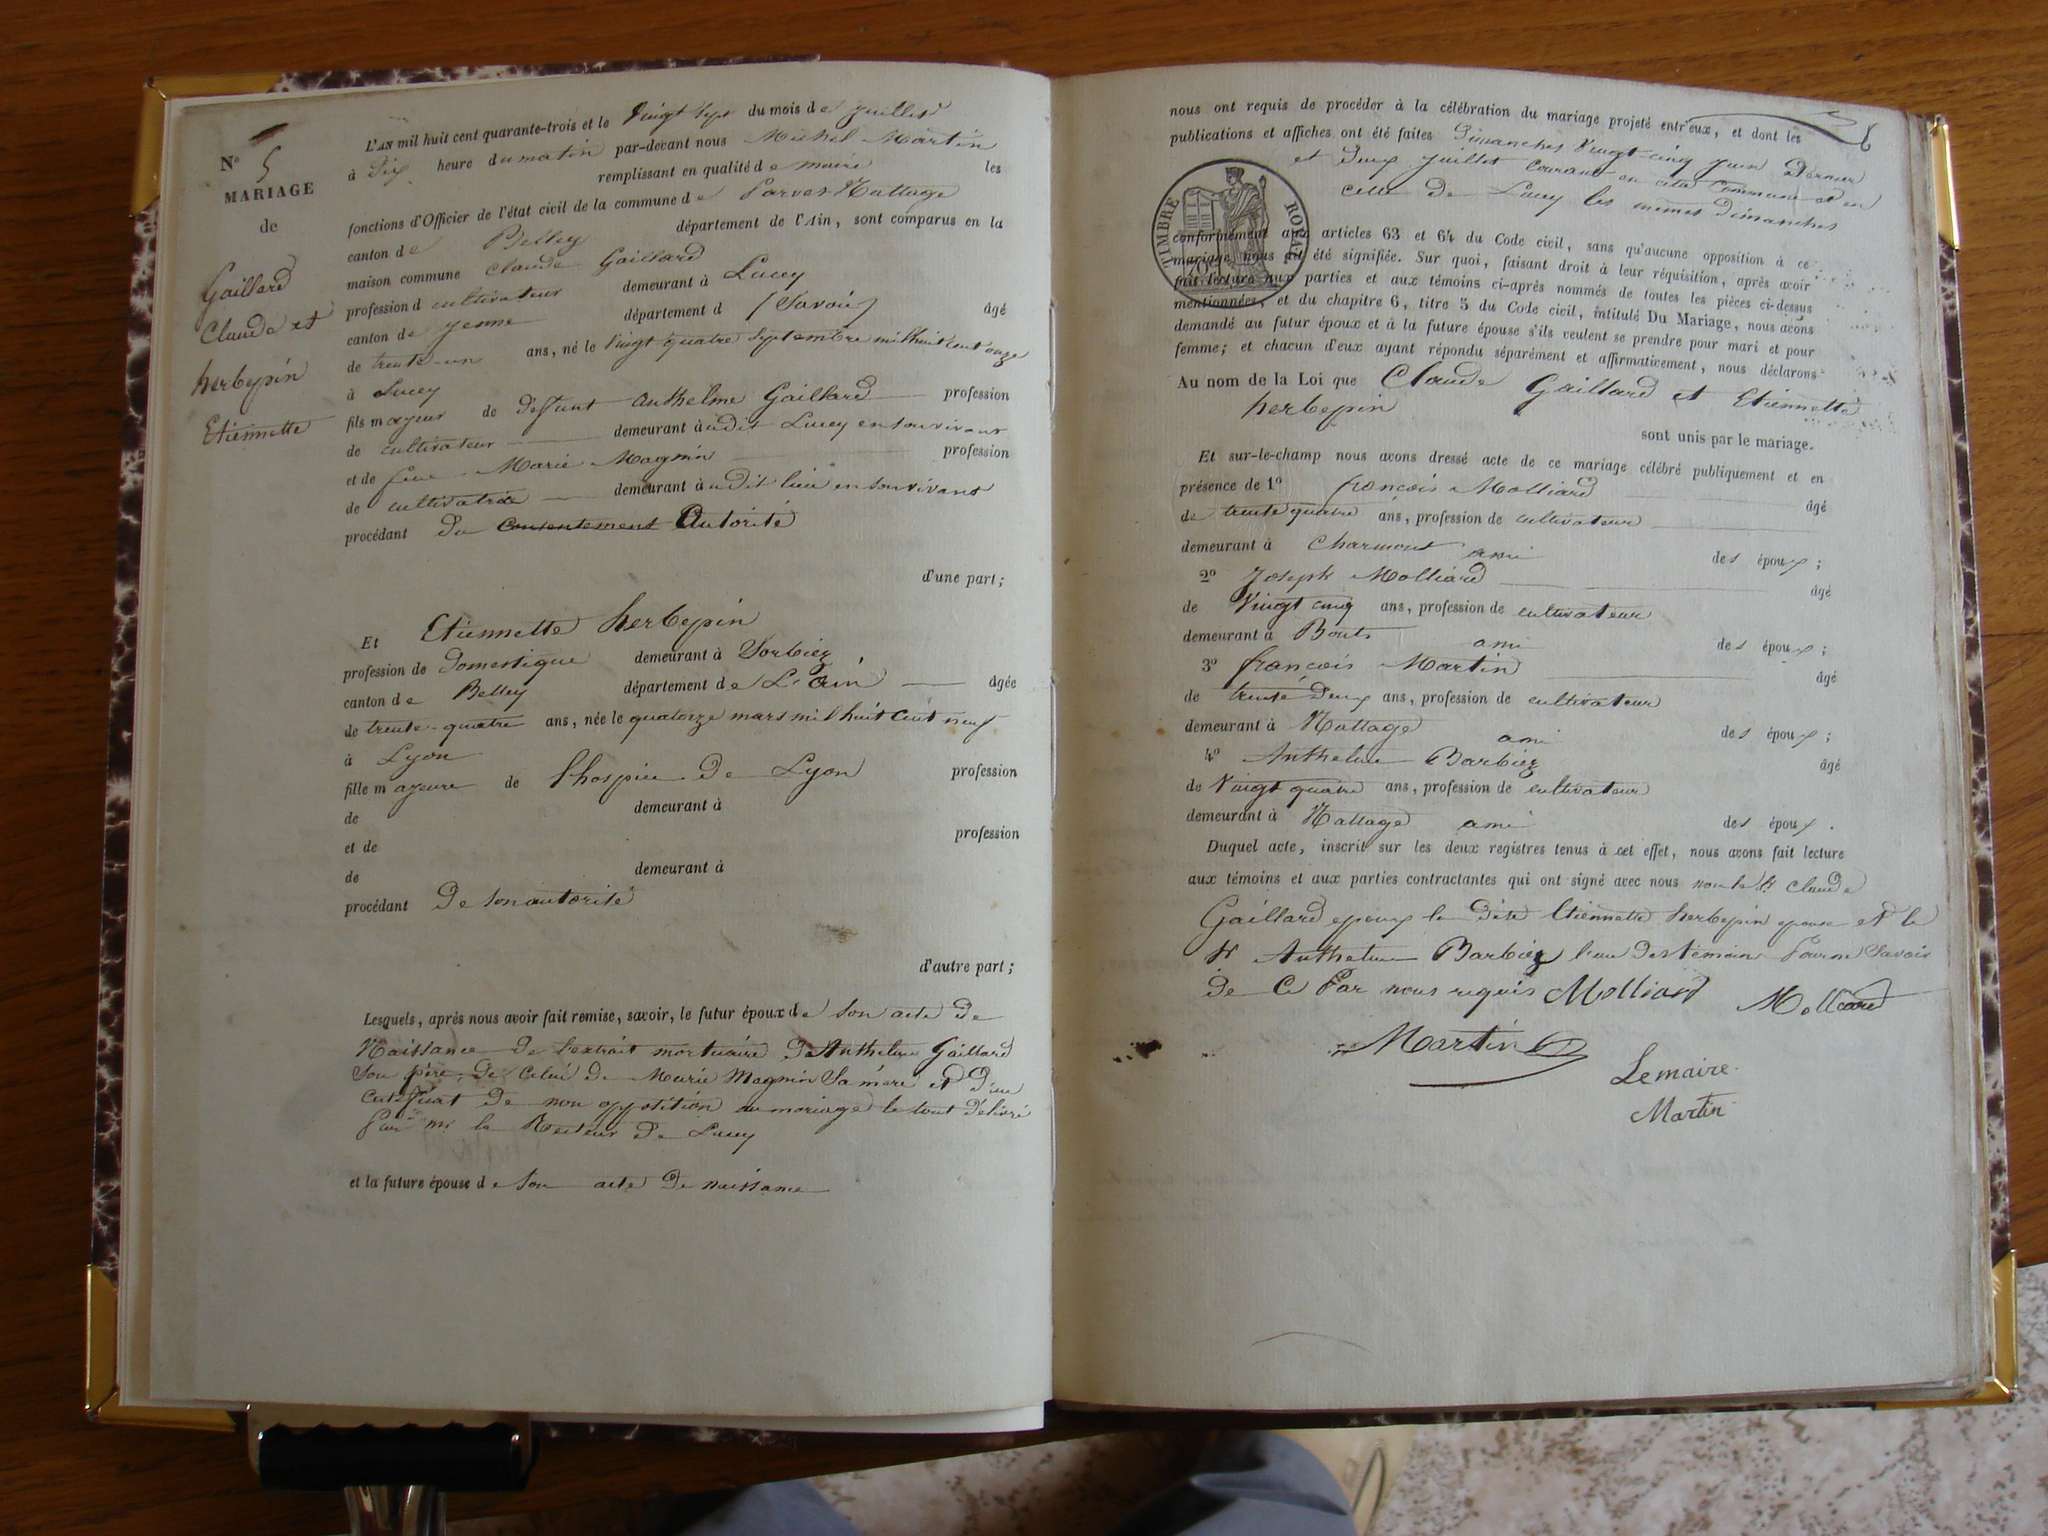 N° 5
MARIAGE
de
Gaillard
Claude et
herbepin
Etiennette
L'AN mil huit cent quarante-trois et le Vingt Sept du mois de juillet
à Dix heure du matin par-devant nous Michel Martin
remplissant en qualité de maire les
fonctions d'Officier de l'état civil de la commune de Parves Nattage
canton de Belley département de l'Ain, sont comparus en la
maison commune Claude Gaillard
profession d cultivateur demeurant à Lucey
canton de yenne département d (Savoie) âgé
de trente-un ans, né le Vingt quatre Septembre mil huit cent onze
à Lucey
fils mayeur de Deffunt Anthelme Gaillard profession
de cultivateur demeurant audit Lucey en son vivant
et de feue Marie Magnin profession
de cultivatrice demeurant audit lieu en son vivant
procédant Du consentement Autorité
d'une part;
Et Etiennette herbepin
profession de Domestique demeurant à Sorbiez
canton de Belley département de L'Ain âgée
de trente-quatre ans, née le quatorze mars mil huit cent neuf
à Lyon
fille mayeure de l'hospice De Lyon profession
de demeurant à
et de profession
de demeurant à
procédant De son autorité
d'autre part;
Lesquels, après nous avoir fait remise, savoir, le futur époux de son acte De
Naissance de l'extrait mortuaire De Anthelme Gaillard
Son père, De Celui De Marie Magnin Sa mère et D'un
Certificat De non oppotition au mariage le tout Délivré
par mr le Recteur De Lucey
et la future épouse de Son acte De naissance
nous ont requis de procéder à la célébration du mariage projeté entr'eux, et dont les
publications et affiches ont été faites Dimanches Vingt-cinq juin Dernier
et Deux juillet courant en cette Commune et en
celle De Lucey les mêmes Dimanches
TIMBRE ROYAL
conformément aux articles 63 et 64 du Code civil, sans qu'aucune opposition à ce
mariage nous ait été signifiée. Sur quoi, faisant droit à leur réquisition, après avoir
fait lecture aux parties et aux témoins ci-après nommés de toutes les pièces ci-dessus
mentionnées, et du chapitre 6, titre 5 du Code civil, intitulé Du Mariage, nous avons
demandé au futur époux et à la future épouse s'ils veulent se prendre pour mari et pour
femme; et chacun d'eux ayant répondu séparément et affirmativement, nous déclarons
Au nom de la Loi que Claude Gaillard et Etiennette
herbepin
sont unis par le mariage.
Et sur-le-champ nous avons dressé acte de ce mariage célébré publiquement et en
présence de 1° françois Molliard âgé
de trente quatre ans, profession de cultivateur
demeurant à Charmont ami des époux;
2° Joseph Molliard âgé
de Vingt cinq ans, profession de cultivateur
demeurant à Bonts ami des époux;
3° françois Martin âgé
de trente Deux ans, profession de cultivateur
demeurant à Nattage ami des époux;
4° Anthelme Barbiez âgé
de Vingt quatre ans, profession de cultivateur
demeurant à Nattage ami des époux.
Duquel acte, inscrit sur les deux registres tenus à cet effet, nous avons fait lecture
aux témoins et aux parties contractantes qui ont signé avec nous non le St Claude
Gaillard epoux la Dite Etiennette herbepin epouse et le
St Anthelme Barbiez l'un Des témoin Pour ne Savoir
De Ce Par nous requis Molliard Molliard
Martin
Lemaire
Martin